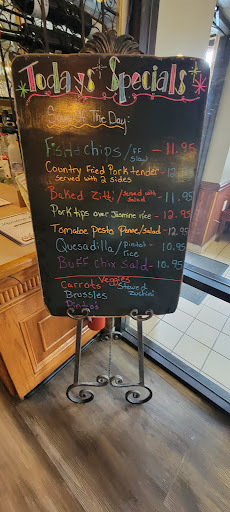 Todays Specials
Soup of The Day:
Fish & Chips / FF slaw - 11.95
Country Fried Pork tender -
served with 2 sides
Baked Zitti / served with salad - 11.95
Pork tips over Jasmine rice - 12.95
Tomatoe Pesto Penne / salad - 12.95
Quesadilla / pinto & rice - 10.95
Buff Chix Salad - 10.95
Veggies
Carrots Stewed zuchini
Brussles
Pintos